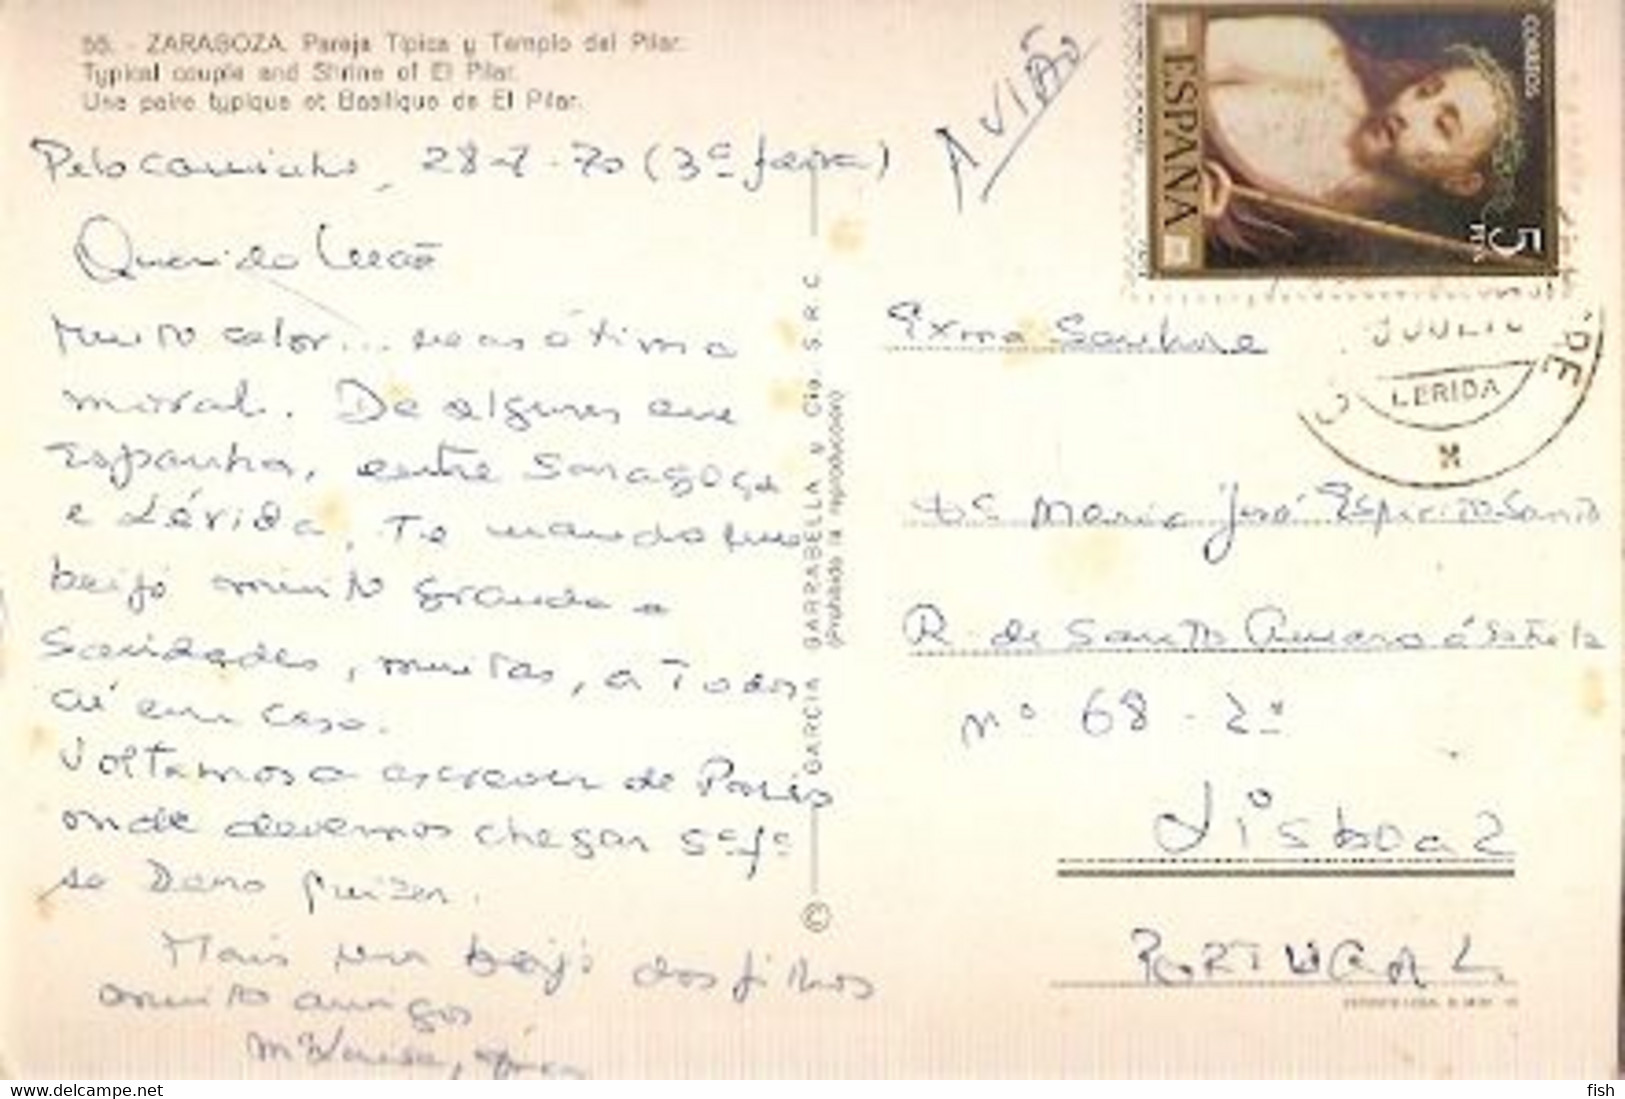 55. - ZARAGOZA. Pareja Típica y Templo del Pilar.
Typical couple and Shrine of El Pilar.
Une paire typique et Basilique de El Pilar.
Pelo caminho, 28-7-70 (3ª feira)
Muito calor... mas ótima
moral. De algures em
Espanha, entre Saragoça
e Lérida, te mando um
beijo muito grande e
Saudades, muitas, a todos
aí em casa.
Voltamos a escrever de Paris
onde devemos chegar 5ª fª
se Deus quizer.
Mais um beijo dos filhos
muito amigos
GARCIA GARRABELLA Y Cía. S.R.C.
(Prohibida la reproducción)
©
AVIÃO
CORREOS
ESPAÑA
5 PTA
JULIO
LERIDA
Exma Senhora
Maria José Espirito Santo
R. de Santo Amaro á Estrela
nº 68 - 2º
Lisboa 2
PORTUGAL
fish